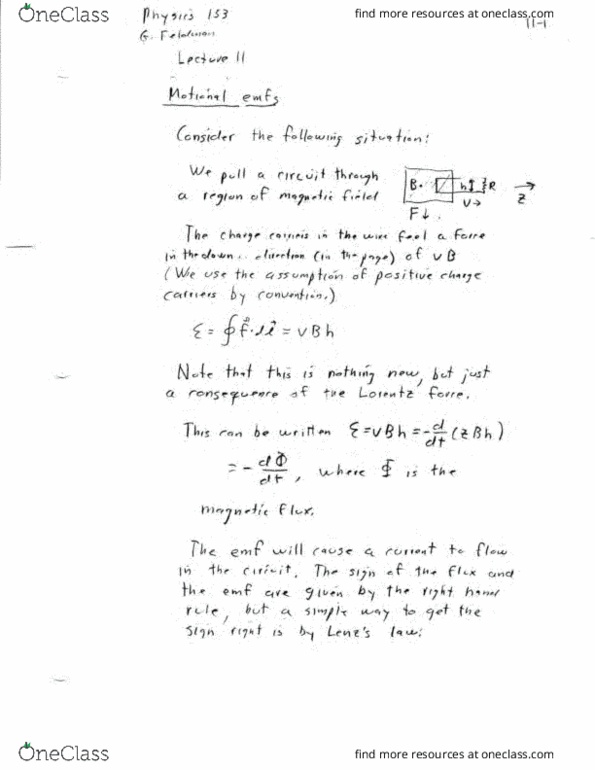 OneClass
find more resources at oneclass.com
Physics 153
11-1
G. Feldman
Lecture 11
Motional emfs
Consider the following situation:
We pull a circuit through
a region of magnetic field
B· h R
V→ z
F↓
The charge carriers in the wire feel a force
in the down direction (in the page) of vB
(We use the assumption of positive charge
carriers by convention.)
ℰ = ∮ f⃗·dl⃗ = vBh
Note that this is nothing new, but just
a consequence of the Lorentz force.
This can be written ℰ = vBh = -d/dt (zBh)
= - dΦ/dt, where Φ is the
magnetic flux.
The emf will cause a current to flow
in the circuit. The sign of the flux and
the emf are given by the right hand
rule, but a simple way to get the
sign right is by Lenz's law:
OneClass
find more resources at oneclass.com